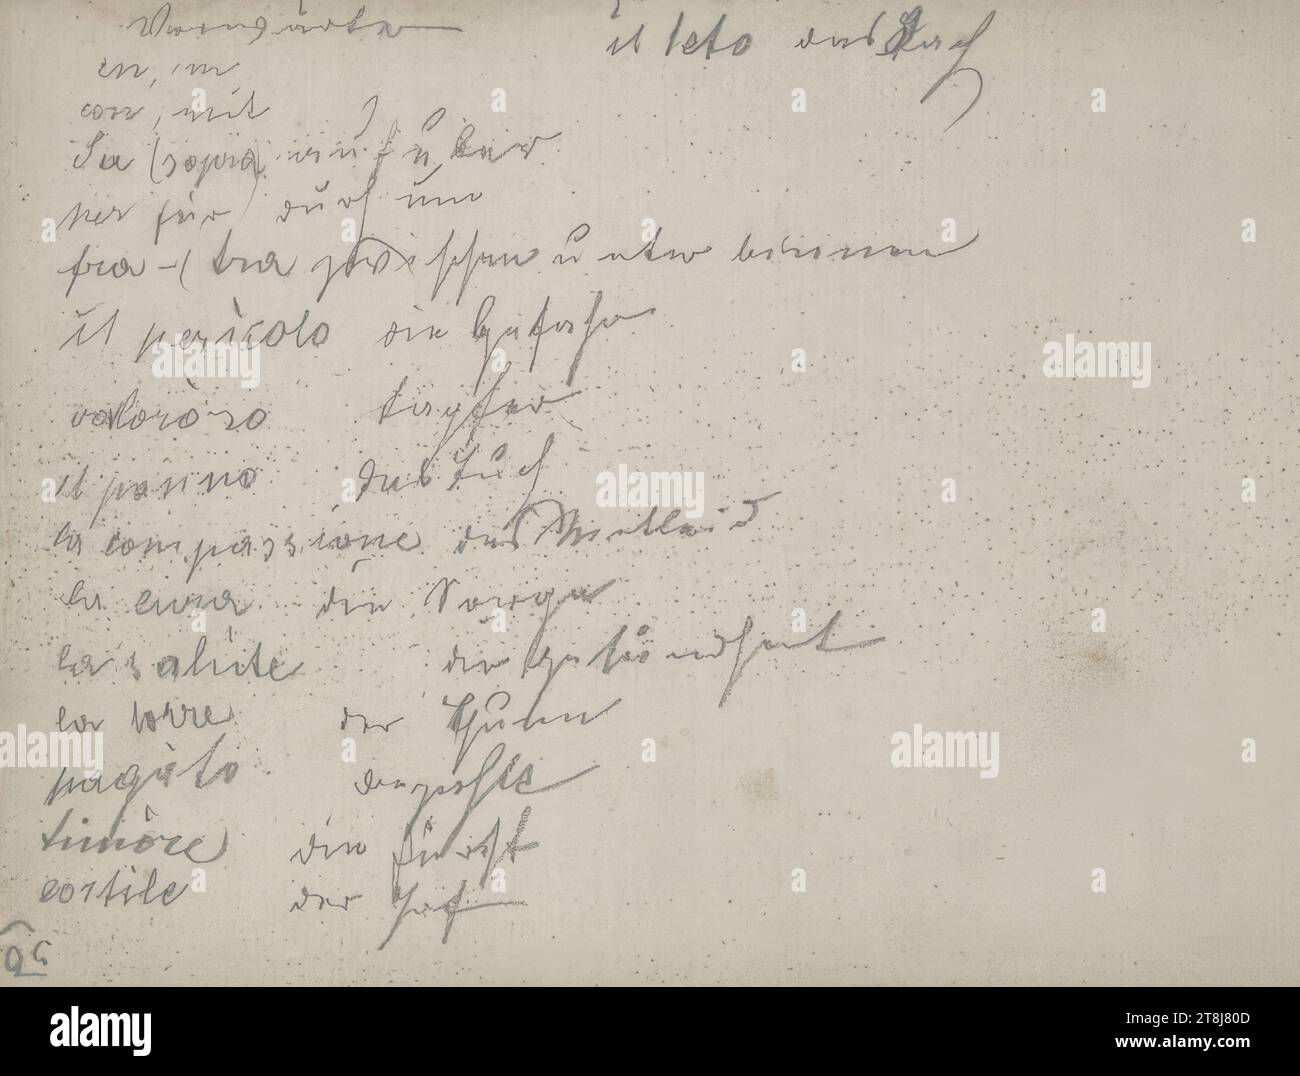 Vorwärts
il teto das Dach
en, in
con, mit
Su (sopra) auf über
per für durch um
fra - (tra zwischen unter binnen
il pericolo die Gefahr
valoròso tapfer
il panno das Tuch
la compassione das Mitleid
la cura die Sorge
la salute die Gesundheit
la torre der Thurm
die
timòre die Furcht
cortile der Hof
alamy
Image ID: 2T8J80D
www.alamy.com